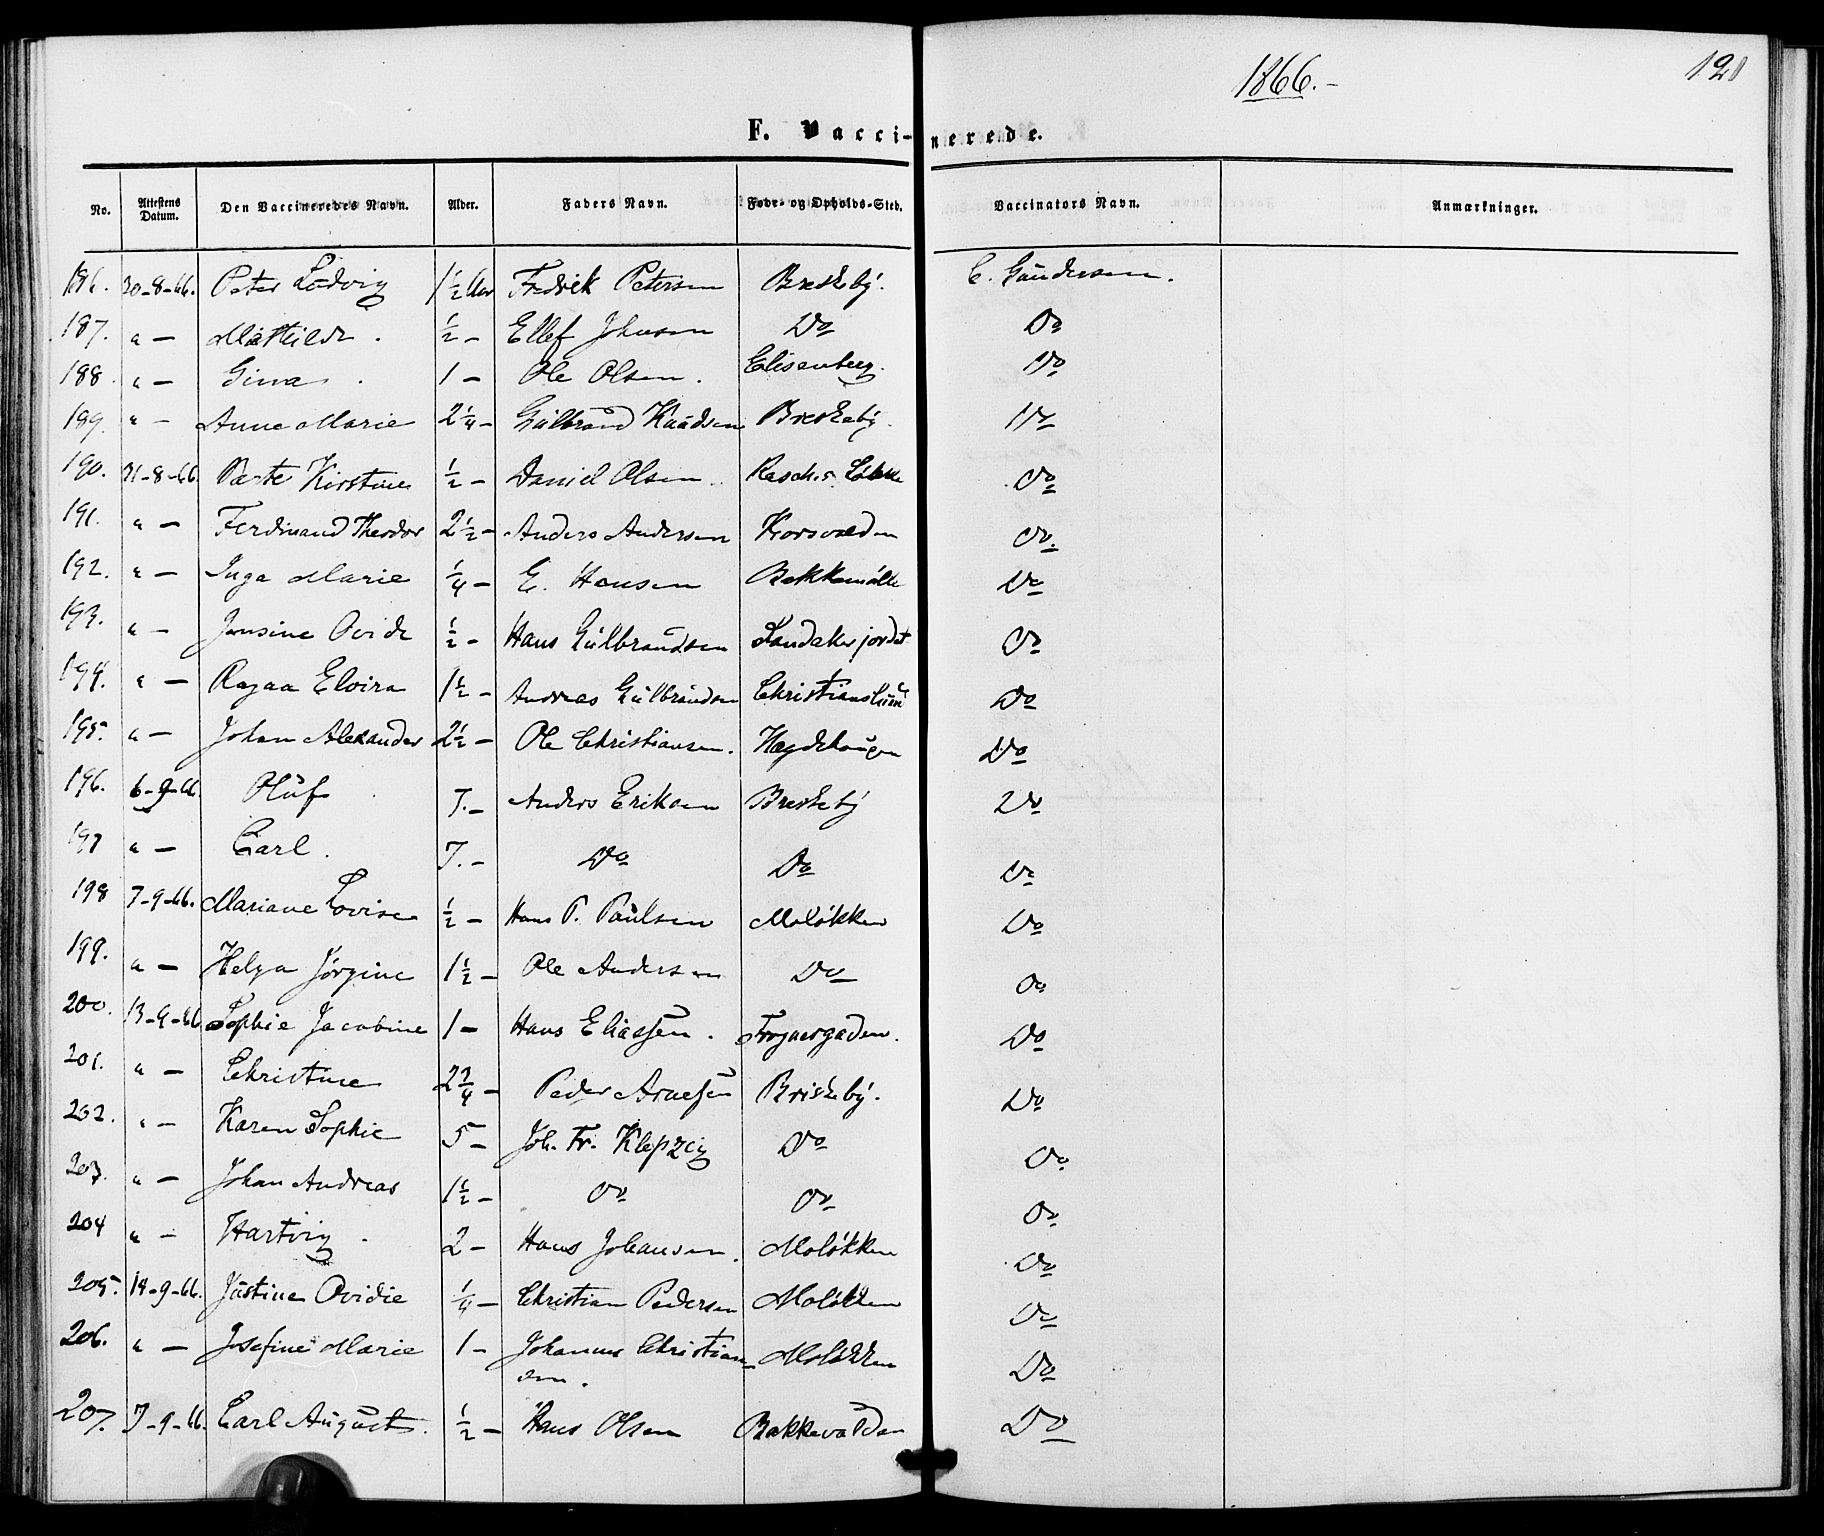 1866.-
121
F. Vaccinerede.
No. Attestens Datum. Den Vaccineredes Navn. Alder. Faders Navn. Føde- og Opholds-Sted. Vaccinators Navn. Anmærkninger.
186. 20-8-66. Peter Ludvig 1½ Aar Fredrik Petersen Breskeby. C. Gundersen.
187. " — Mathilde. ½ - Ellef Johnsen Do Do
188. " — Gina. 1 - Ole Olsen. Elisenberg. Do
189. " - Anne Marie 2¼ - Gulbrand Knudsen Breskeby. Do
190. 21-8-66. Berte Kirstine ½ - Daniel Olsen. Rasch's Løkke Do
191. " - Ferdinand Theodor 2½ - Anders Andersen Korsvolden Do.
192. " - Inga Marie ¼ - E. Hansen Bekkemølle Do
193. " - Jensine Ovide ½ - Hans Gulbrandsen Sandakerjordet Do
194. " — Ragna Elvira 1½ - Andreas Gulbrandsen Christianslund Do
195. " - Johan Alexander 2½ - Ole Christiansen. Hægdehaugen Do
196. 6-9-66. Oluf 7. - Anders Eriksen Breskeby Do
197 " — Carl. 7. - Do Do Do
198 7-9-66. Mariane Lovise ½ - Hans P. Paulsen Moløkken Do
199. " — Helga Jørgine 1½ - Ole Andersen Do Do
200. 13-9-66 Sophie Jacobine 1 - Hans Eliassen. Frognergaden. Do
201. " — Christine 2¾ - Peder Arnesen Briskeby. Do
202. " - Karen Sophie 5 - Joh. Fr. Klepzig Do Do
203. " - Johan Andreas 1½ - Do Do Do
204 " - Hartvig. 2 - Hans Johansen. Moløkken Do
205. 14-9-66. Justine Ovidie ¼ - Christian Pedersen Moløkken Do
206. " — Josefine Marie 1 - Johannes Christian- Moløkken Do
sen.
207. 7-9-66. Carl August. ½ - Hans Olsen Bakkevolden Do